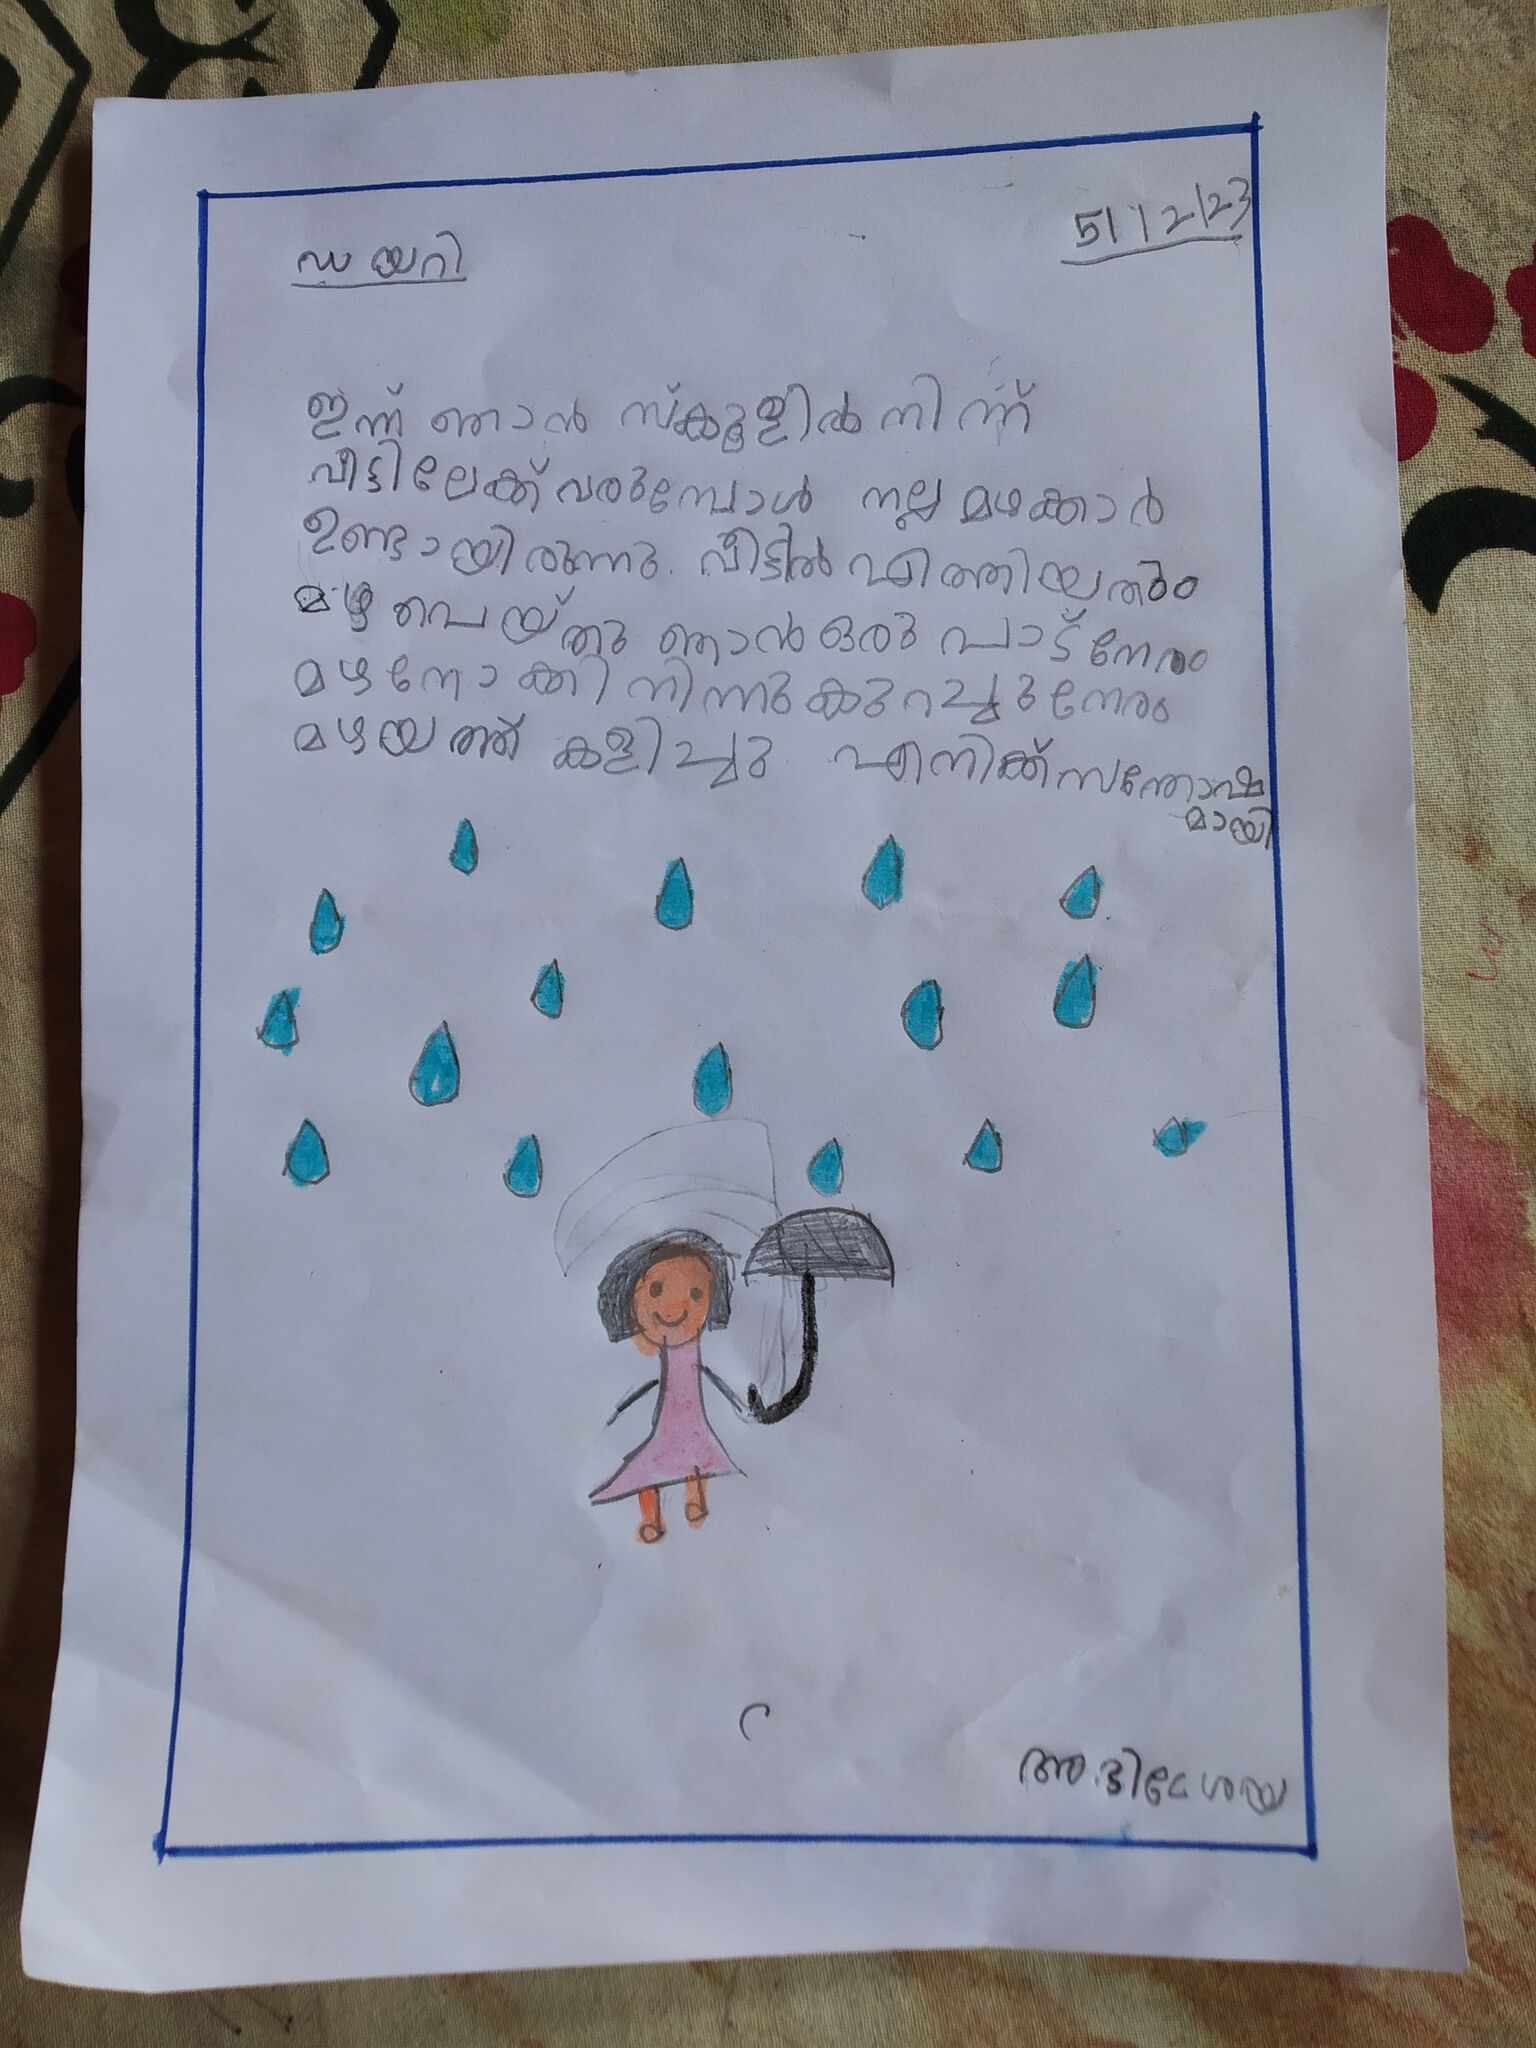 ഡയറി
5/12/23
ഇന്ന് ഞാൻ സ്കൂളിൽ നിന്ന്
വീട്ടിലേക്ക് വരുമ്പോൾ നല്ല മഴക്കാർ
ഉണ്ടായിരുന്നു. വീട്ടിൽ എത്തിയതും
മഴ പെയ്തു ഞാൻ ഒരു പാട് നേരം
മഴ നോക്കി നിന്നു കുറച്ചു നേരം
മഴയത്ത് കളിച്ചു. എനിക്ക് സന്തോഷ
മായി